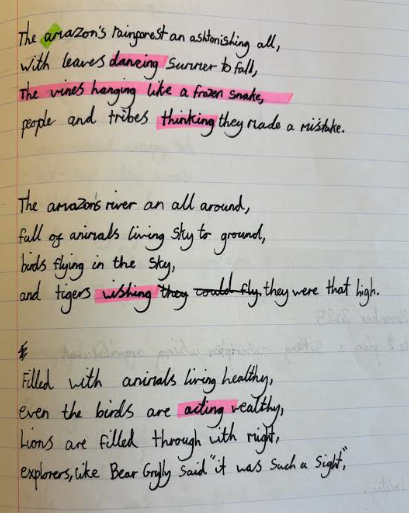 The amazon's rainforest an ashtonishing all,
with leaves dancing Summer to fall,
The vines hanging like a frozen snake,
people and tribes thinking they made a mistake.
The amazon's river an all around,
full of animals living Sky to ground,
birds flying in the Sky,
and tigers wishing they could fly, they were that high.
Filled with animals living healthy,
even the birds are acting wealthy,
Lions are filled through with might,
explorers, like Bear Grylly Said "it was Such a Sight",